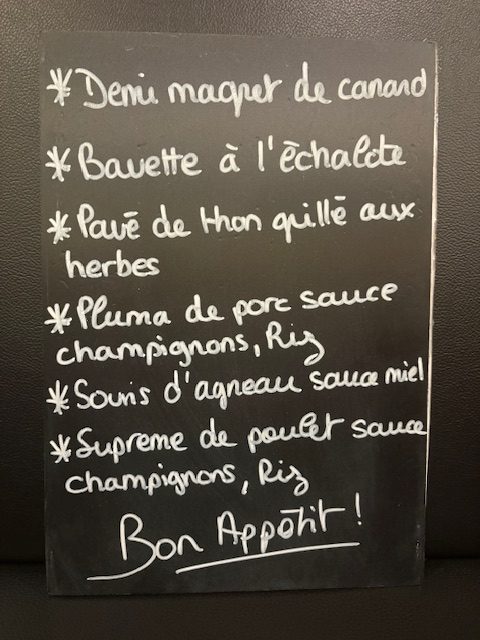 * Demi magret de canard
* Bavette à l'échalote
* Pavé de thon grillé aux
herbes
* Pluma de porc sauce
champignons, Riz
* Souris d'agneau sauce miel
* Supreme de poulet sauce
champignons, Riz
Bon Appétit !